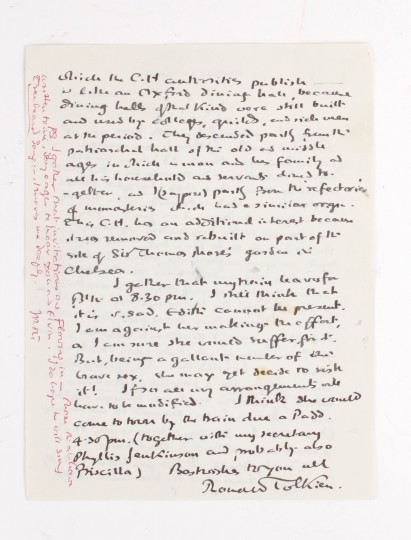 which the C.H authorities publish
is like an Oxford dining hall, because
dining halls of that kind were still built
and used by colleges, guilds, and rich men
at the period. They descended partly from the
patriarchal hall of the old and middle
ages in which a man and his family and
all his household and servants dined to-
gether, and partly from the refectories
of monasteries which had a similar origin.
This C.H. has an additional interest because
it was removed and rebuilt on part of the
site of Sir Thomas More's garden in
Chelsea.
I gather that my train leaves for
at 8.30 pm. I still think that
it is v. sad Edith cannot be present.
I am against her making the effort,
as I am sure she would suffer for it.
But, being a gallant member of the
brave sex, she may yet decide to risk
it! If so all my arrangements will
have to be modified. I think she would
come to town by the train due a Padd.
4.30 pm. (together with my secretary
Phyllis Jenkinson and probably also
Priscilla) Best wishes to you all
Ronald Tolkien.
PS I gather that invitations are flowing in
written to me